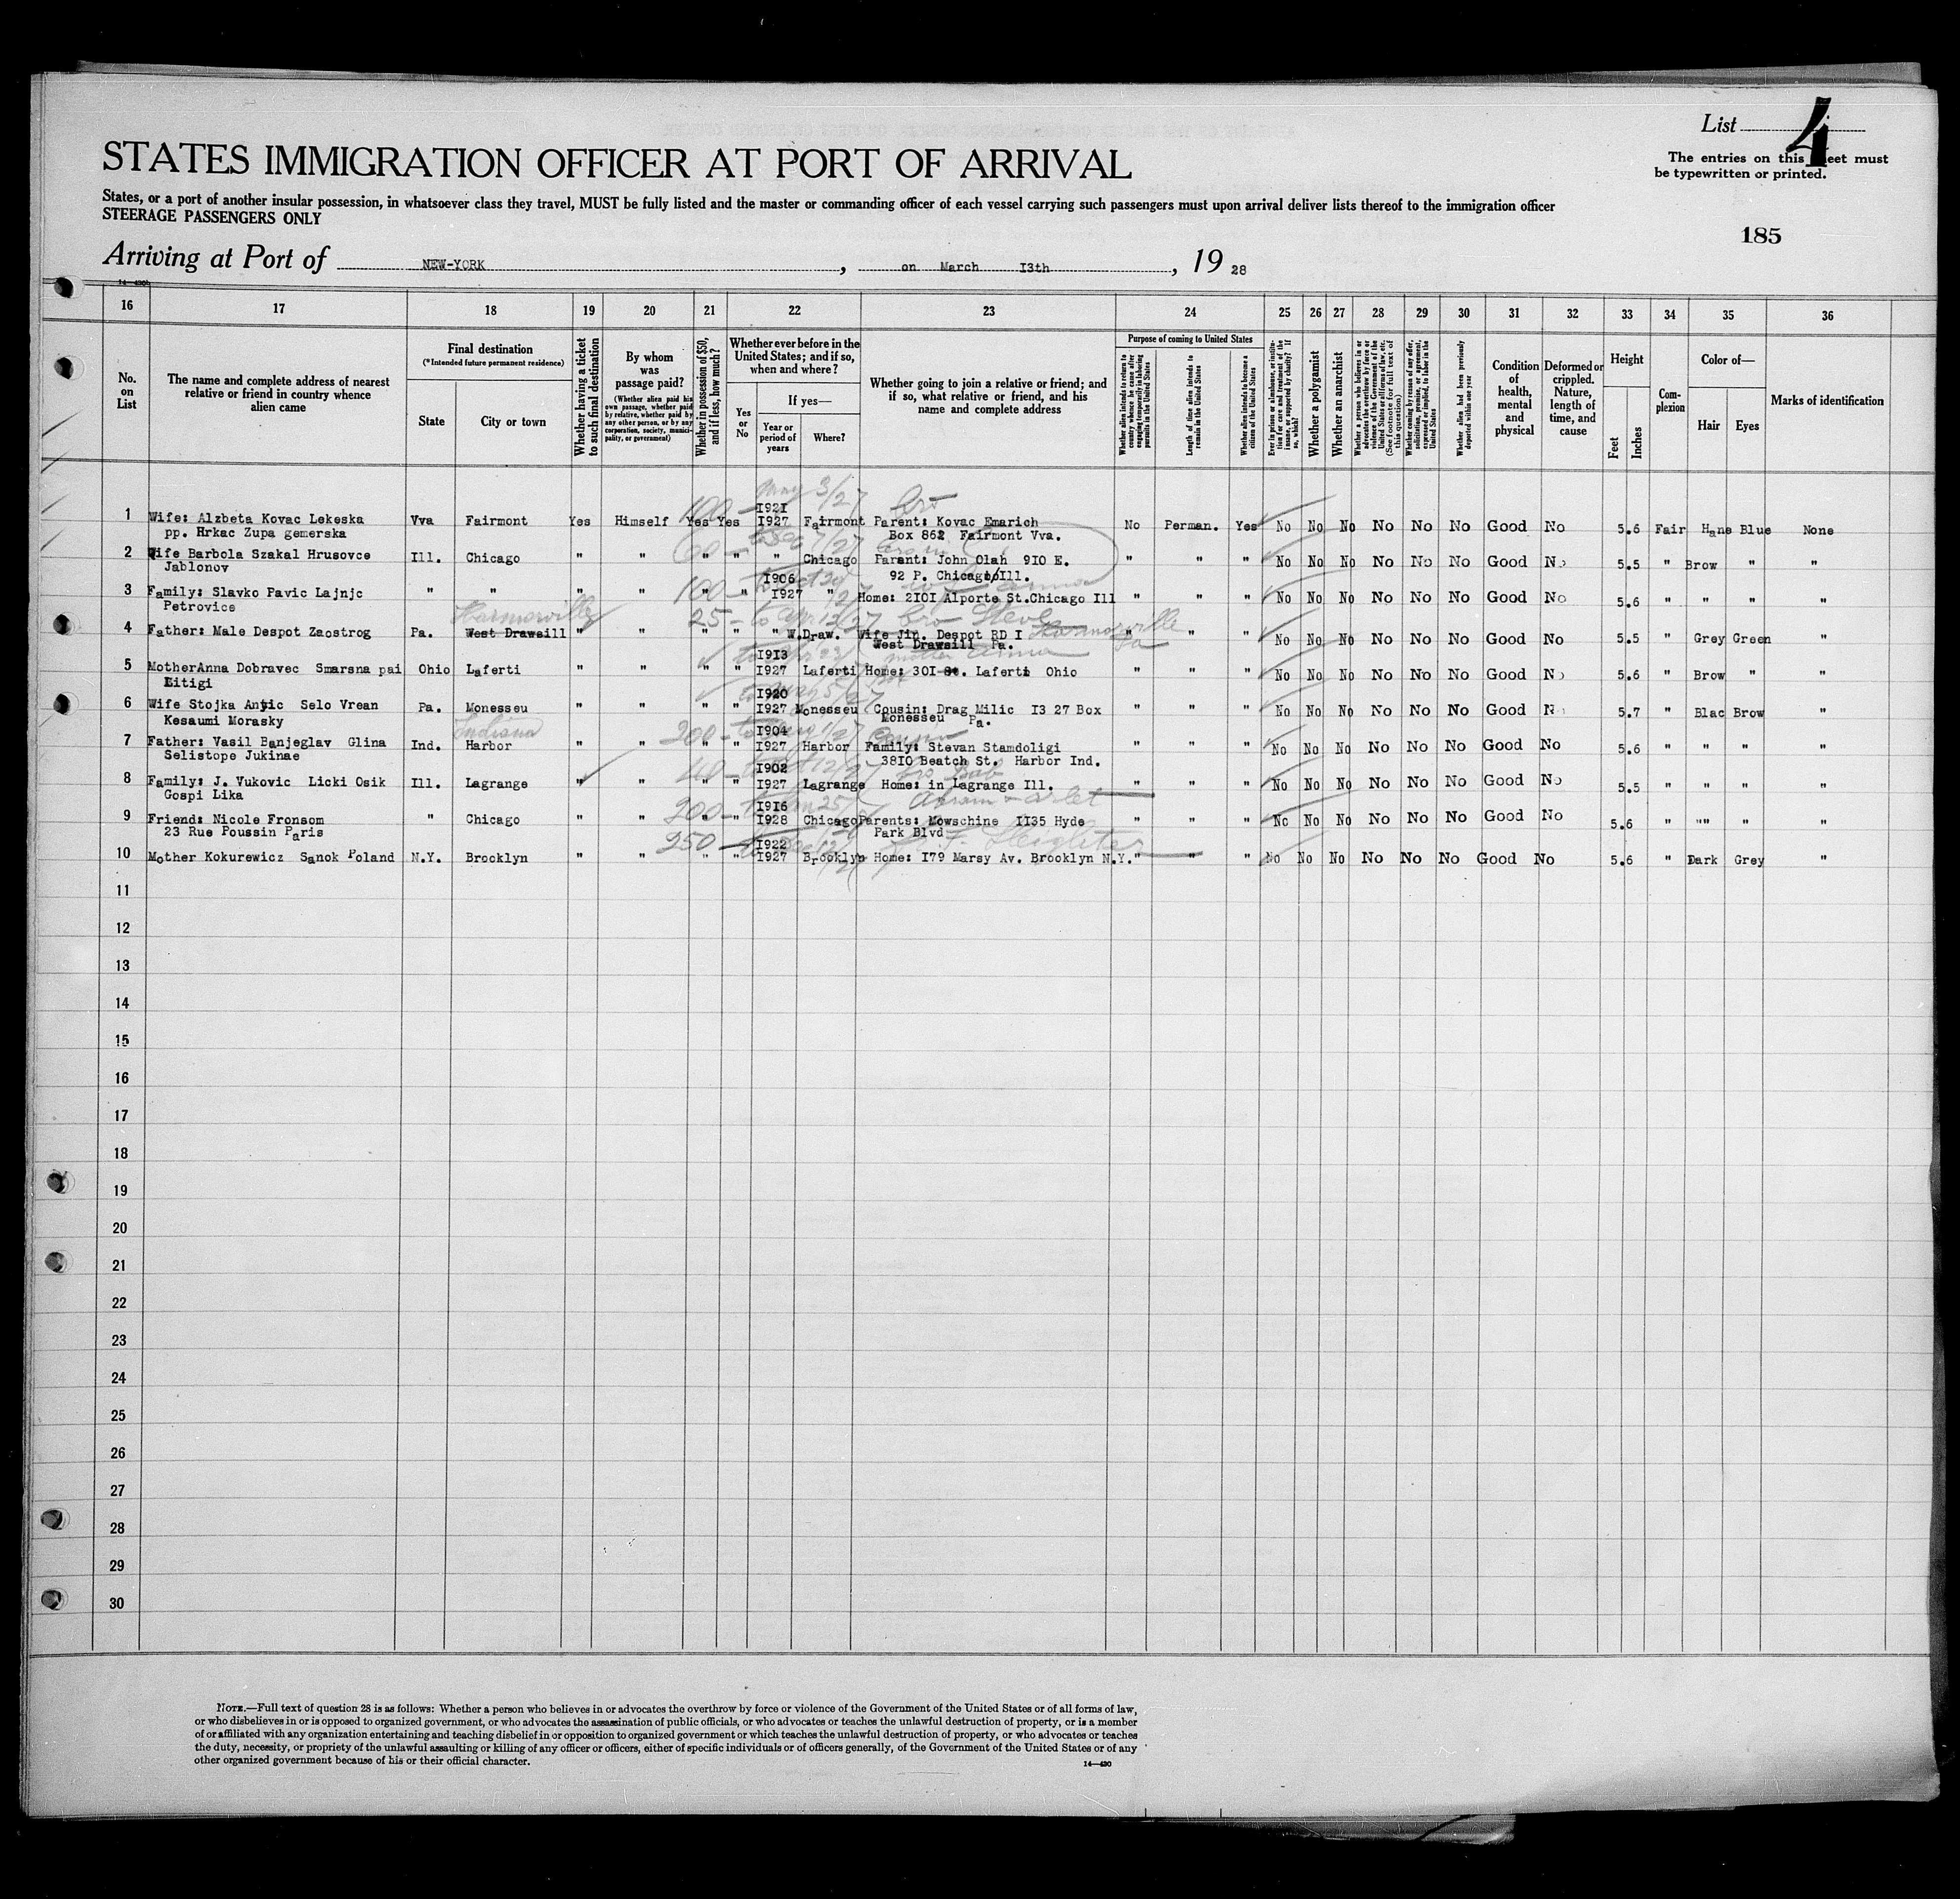 List 4
The entries on this sheet must
be typewritten or printed.
STATES IMMIGRATION OFFICER AT PORT OF ARRIVAL
States, or a port of another insular possession, in whatsoever class they travel, MUST be fully listed and the master or commanding officer of each vessel carrying such passengers must upon arrival deliver lists thereof to the immigration officer
STEERAGE PASSENGERS ONLY
185
Arriving at Port of NEW-YORK , on March I3th , 19 28
16 17 18 19 20 21 22 23 24 25 26 27 28 29 30 31 32 33 34 35 36
No. on List
The name and complete address of nearest relative or friend in country whence alien came
Final destination
(*Intended future permanent residence)
State
City or town
Whether having a ticket to such final destination
By whom was passage paid?
(Whether alien paid his own passage, whether paid by relative, whether paid by any other person, or by any corporation, society, municipality, or government)
Whether in possession of $50, and if less, how much?
Whether ever before in the United States; and if so, when and where?
Yes or No
If yes—
Year or period of years
Where?
Whether going to join a relative or friend; and if so, what relative or friend, and his name and complete address
Purpose of coming to United States
Length of time alien intends to remain in the United States
Whether alien intends to become a citizen of the United States
Whether a polygamist
Whether an anarchist
Whether alien had been previously deported within one year
Condition of health, mental and physical
Deformed or crippled. Nature, length of time, and cause
Height
Feet
Inches
Complexion
Color of—
Hair
Eyes
Marks of identification
1 Wife: Alzbeta Kovac Lekeska Vva Fairmont Yes Himself 100 Yes Yes I92I I927 Fairmont Parent: Kovac Emarich No Perman. Yes No No No No No No Good No 5.6 Fair Hane Blue None
pp. Hrkac Zupa gemerska Box 862 Fairmont Vva.
2 Wife Barbola Szakal Hrusovce Ill. Chicago " " " " " Chicago Parent: John Olah 9I0 E. " " " No No No No No No Good No 5.5 " Brow " "
Jablonov 92 P. Chicago Ill.
3 Family: Slavko Pavic Lajnjc " " " " 100 " " I906 I927 " Home: 2I0I Alporte St.Chicago Ill " " " No No No No No No Good No 5.6 " " " "
Petrovice
4 Father: Male Despot Zaostrog Pa. West Drawsill Harmorville " " 25 " " " W.Draw. Wife Jin. Despot RD I " " " No No No No No No Good No 5.5 " Grey Green "
West Drawsill Pa. bro Steve Harmorville Pa
5 MotherAnna Dobravec Smarsna pai Ohio Laferti " " " " I9I3 I927 Laferti Home: 30I-St. Laferti Ohio " " " No No No No No No Good No 5.6 " Brow " "
Litigi mother Anna
6 Wife Stojka Antic Selo Vrean Pa. Monesseu " " " " I920 I927 Monesseu Cousin: Drag Milic I3 27 Box " " " No No No No No No Good No 5.7 " Blac Brow "
Kesaumi Morasky Monesseu Pa.
7 Father: Vasil Banjeglav Glina Ind. Indiana Harbor " " 200 " " I904 I927 Harbor Family: Stevan Stamdoligi " " " No No No No No No Good No 5.6 " " " "
Selistope Jukinae 38I0 Beatch St. Harbor Ind.
8 Family: J. Vukovic Licki Osik Ill. Lagrange " " 40 " " I902 I927 Lagrange Home: in Lagrange Ill. " " " No No No No No No Good No 5.5 " " " "
Gospi Lika
9 Friend: Nicole Fronsom " Chicago " " 200 " " I9I6 I928 Chicago Parents: Mowschine II35 Hyde " " " No No No No No No Good No 5.6 " "" " "
23 Rue Poussin Paris Park Blvd
10 Mother Kokurewicz Sanok Poland N.Y. Brooklyn " " 250 " " I922 I927 Brooklyn Home: I79 Marsy Av. Brooklyn N.Y. " " " No No No No No No Good No 5.6 " Dark Grey "
11
12
13
14
15
16
17
18
19
20
21
22
23
24
25
26
27
28
29
30
NOTE.—Full text of question 28 is as follows: Whether a person who believes in or advocates the overthrow by force or violence of the Government of the United States or of all forms of law,
or who disbelieves in or is opposed to organized government, or who advocates the assassination of public officials, or who advocates or teaches the unlawful destruction of property, or is a member
of or affiliated with any organization entertaining and teaching disbelief in or opposition to organized government or which teaches the unlawful destruction of property, or who advocates or teaches
the duty, necessity, or propriety of the unlawful assaulting or killing of any officer or officers, either of specific individuals or of officers generally, of the Government of the United States or of any
other organized government because of his or their official character.
14—430